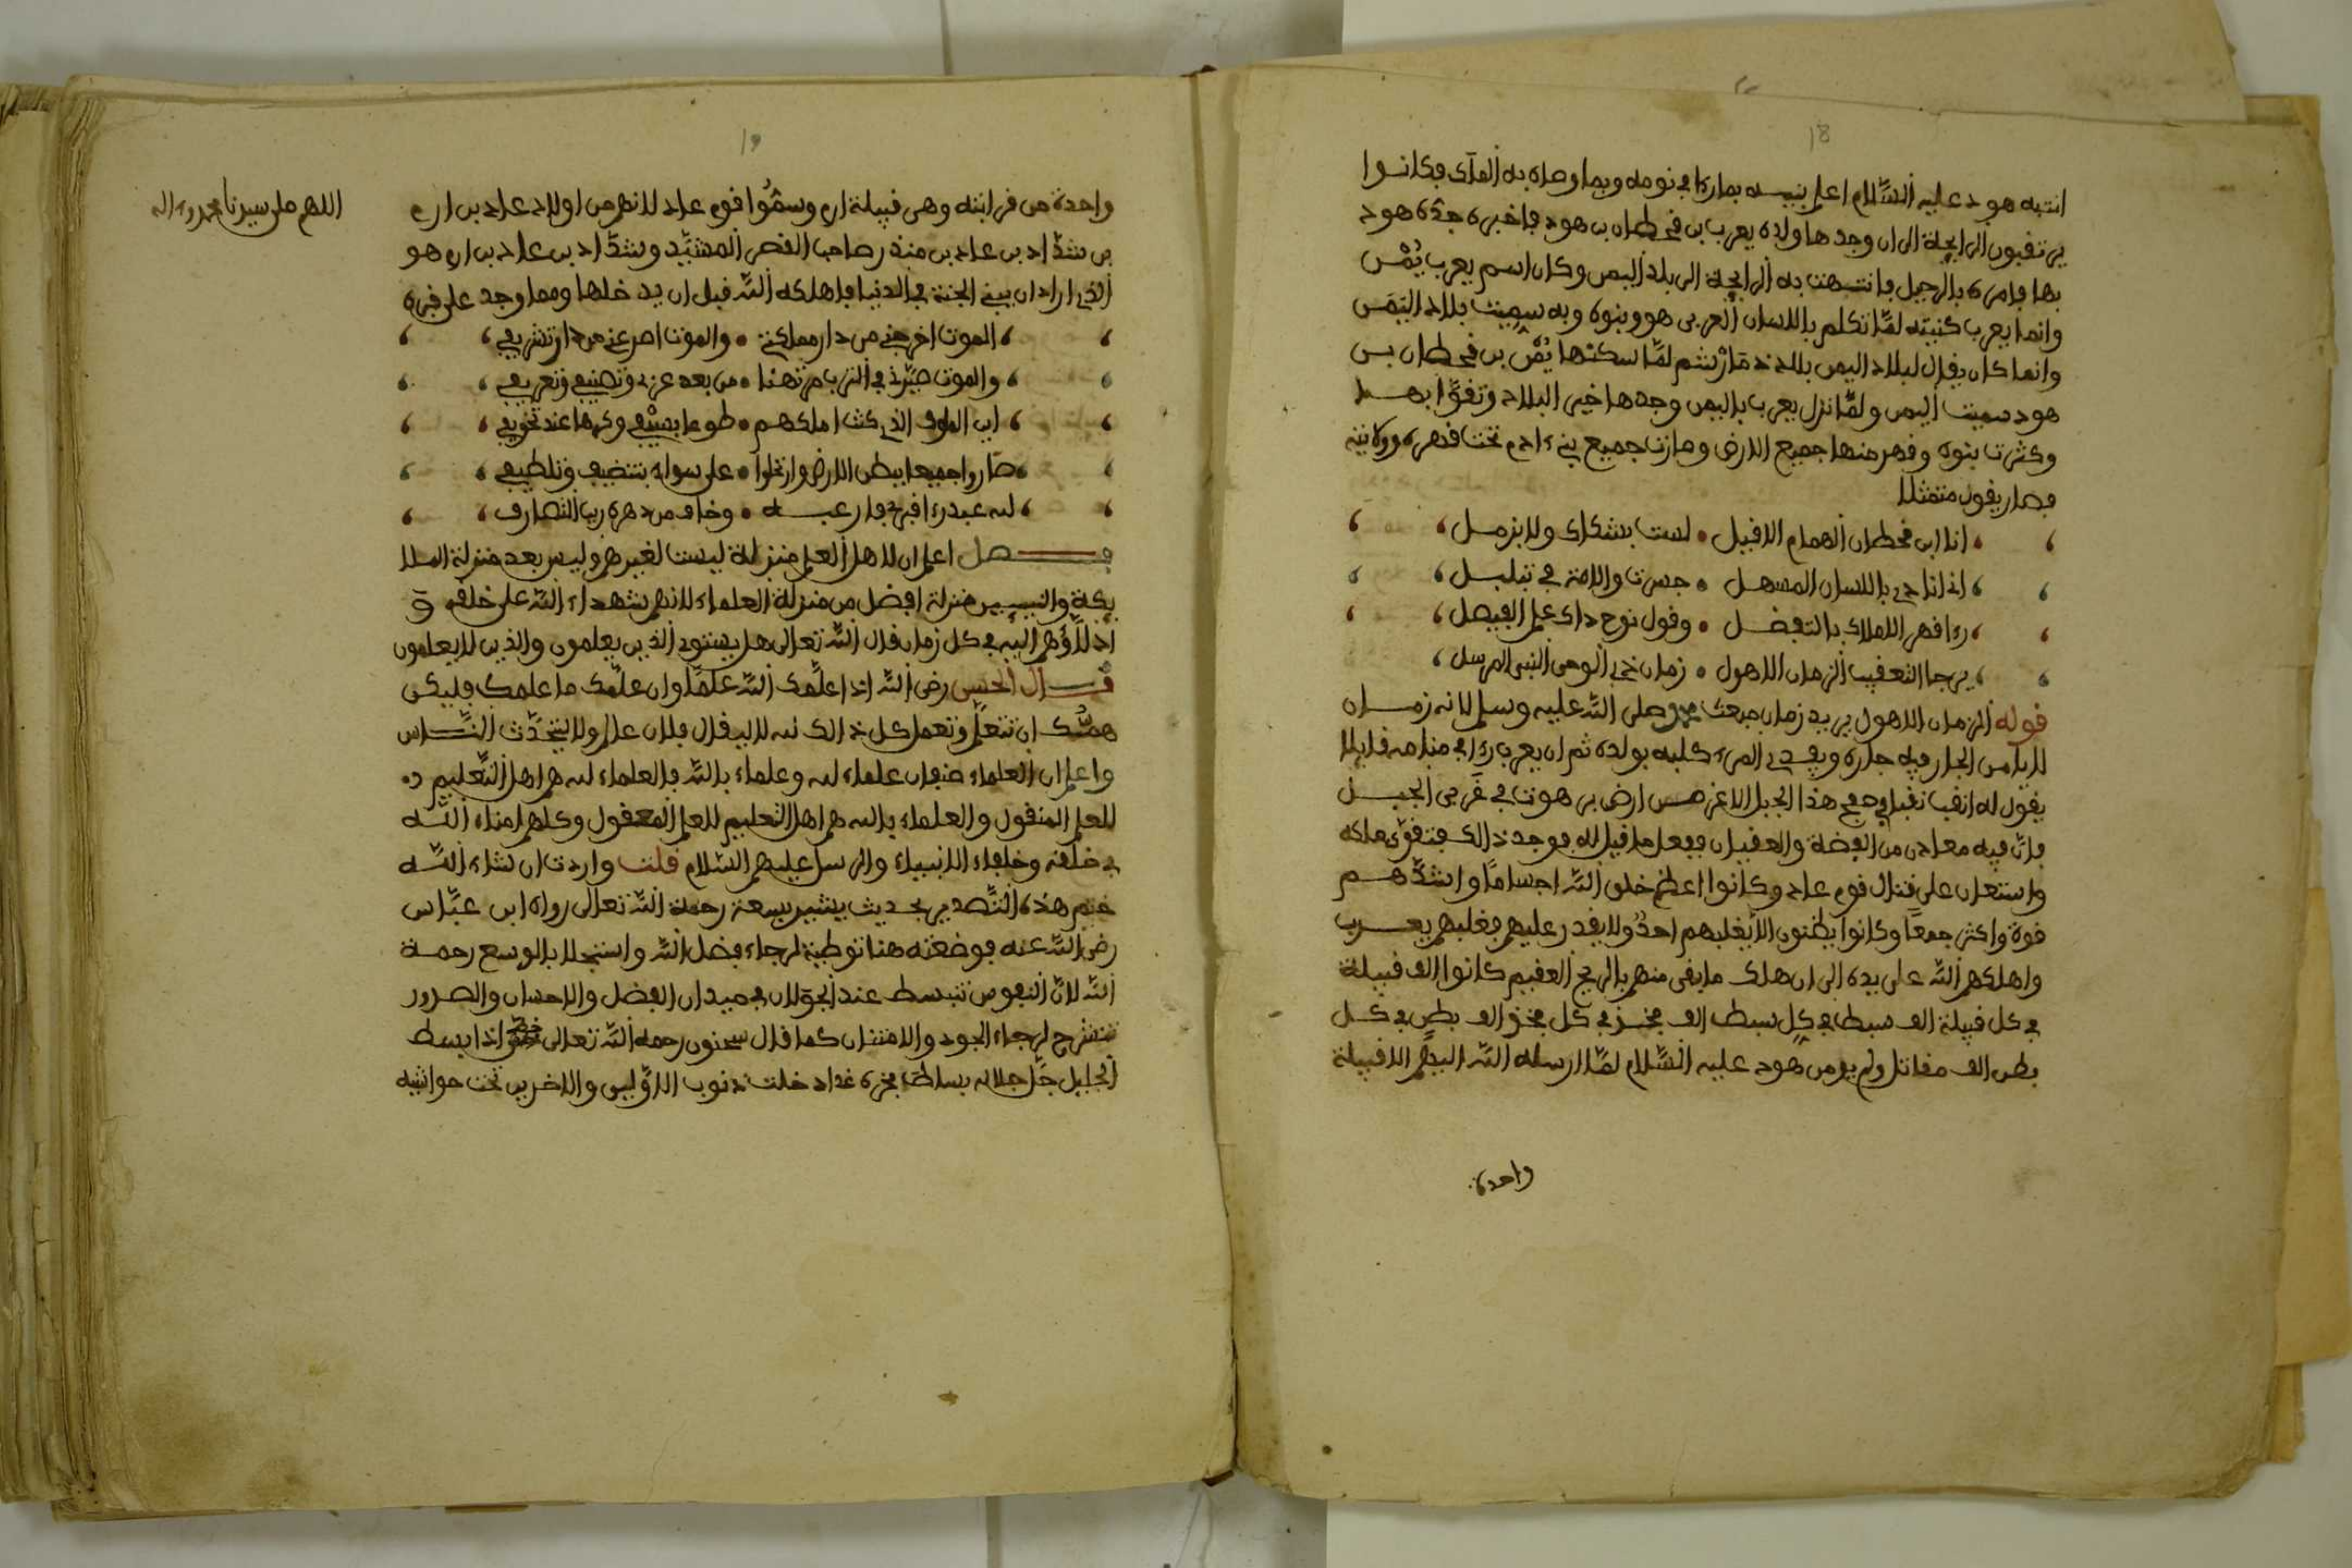 18
انتبه هود عليه السّلام اعلم بنيه بما رءا في نومه وبما وصاه به الملك فكانوا
يرتقبون الرائحة الى ان وجدها ولده يعرب بن قحطان بن هود فاخبره جدّه هود
بها فامره بالرحيل فانتهت به الرائحة الى بلد اليمن وكان اسم يعرب يُمْن
وانما يعرب كنيته لمّا تكلم باللسان العربي هو وبنوه وبه سميت بلاد اليمَن
وانما كان يقال لبلاد اليمن بلاد لمّا سكنها يُمْن بن قحطان بن
هود سميت اليمن ولمّا نزل يعرب باليمن وجدها خير البلاد وتقوّا بها
وكثرت بنوه وقهر منها جميع الارض وصارت جميع بني ءادم تحت قهره وولايته
فصار يقول متمثلا
انا ابن قحطان الهمام الاقيل • لست بشكاك ولا بزمل
اذ انا حي باللسان المسهل • جسرت والامة في تبلبل
رءا قهر الاملاك بالتفضل • وقول نوح ذاك علم الفيصل
يرجا التعقيب الزمان الاهول • زمان نحي الوحي النبي المرسل
قوله الزمان الاهول يريد زمان مبعث محمد صلى الله عليه وسلم لانه زمان
لا يامن الجار فيه جاره ويفدي المرء كلبه بولده ثم ان يعرب رءا في منامه قايلا
يقول له انقب نقبا في هذا الجبل الاغر من ارض برهوت في غربي الجبل
فانّ فيه معادن من الفضة والعقيان ففعل ما قيل له فوجد ذالك فتقوّى ملكه
واستعان على قتال قوم عاد وكانوا اعظم خلق الله اجسامًا واشدّهم
قوة واكثر جمعًا وكانوا يظنون الا يغلبهم احدٌ ولا يقدر عليهم فغلبهم يعرب
واهلكهم الله على يده الى ان هلك ما بقى منهم بالريح العقيم كانوا الف قبيلة
في كل قبيلة الف سبط في كل سبط الف فخذ في كل فخذ الف بطن في كل
بطن الف مقاتل ولم يومن هود عليه السّلام لمّا ارسله الله اليهم الا قبيلة
واحدة
19
واحدة من قرابته وهى قبيلة ارم وسمّوا قوم عاد لانهم من اولاد عاد بن ارم
بن شدّاد بن عاد بن منذر صاحب القصر المشيّد وشدّاد بن عاد بن ارم هو
الذي اراد ان يبني الجنة في الدنيا فاهلكه الله قبل ان يدخلها ومما وجد على قبره
الموت اخرجني من دار مملكتي • والموت اصرعني من دار تشريفي
والموت صيّرني في الترب مرتهنا • من بعد عزي وتصنيفي وتعريفي
اين الملوك الذي كنت املكهم • طوعا بسيفي وكرها عند تخويفي
صاروا جميعا ببطن الارض وارتحلوا • على سواء بتنضيف وتلطيف
لله عبد رءا قبري فارعبه • وخاف من دهره ريب التصارف
فصل اعلم ان لاهل العلم منزلة ليست لغيرهم وليس بعد منزلة الملا
يكة والنبيين منزلة افضل من منزلة العلماء لانهم شهداء الله على خلقه و
ادلّاؤهم اليه في كل زمان قال الله تعالى هل يستوي الذين يعلمون والذين لا يعلمون
قال الحسن رضى الله اذا علّمك الله علمًا وان علّمك ما علمك فليكن
همّك ان تتعلم وتعمل كل ذالك لله لا ليقال فلان عالم ولا يتحدّث النّاس
واعلم ان العلماء صنفان علماء لله وعلماء بالله فالعلماء لله هم اهل التّعليم
للعلم المنقول والعلماء بالله هم اهل التعليم للعلم المعقول وكلهم امناء الله
في خلقه وخلفاء الانبياء والرسل عليهم السّلام قلت واردت ان شاء الله
ختم هذه التّصدير بحديث يشير بسعة رحمة الله تعالى رواه ابن عبّاس
رضى الله عنه فوضعته هنا توطية لرجاء فضل الله واستجلابا لوسع رحمة
الله لانّ النفوس تنبسط عند الجولان في ميدان الفضل والاحسان والصدور
تنشرح لرجاء الجود والامتنان كما قال سحنون رحمه الله تعالى اذا بسط
الجليل جل جلاله بساط مجده غدا دخلت ذنوب الاوّلين والاخرين تحت حواشيه
اللهم صل على سيدنا محمد وءاله